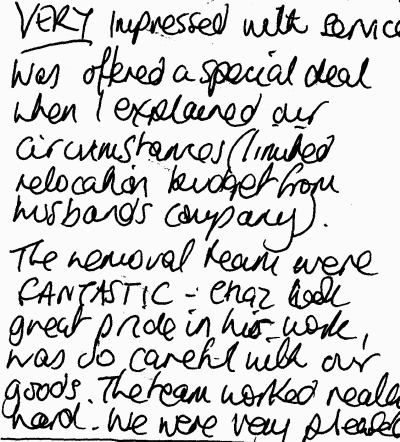 VERY impressed with service
Was offered a special deal
when I explained our
circumstances (limited
relocation budget from
husband's company).
The removal team were
FANTASTIC - Chaz took
great pride in his work,
was so careful with our
goods. The team worked really
hard. We were very pleased